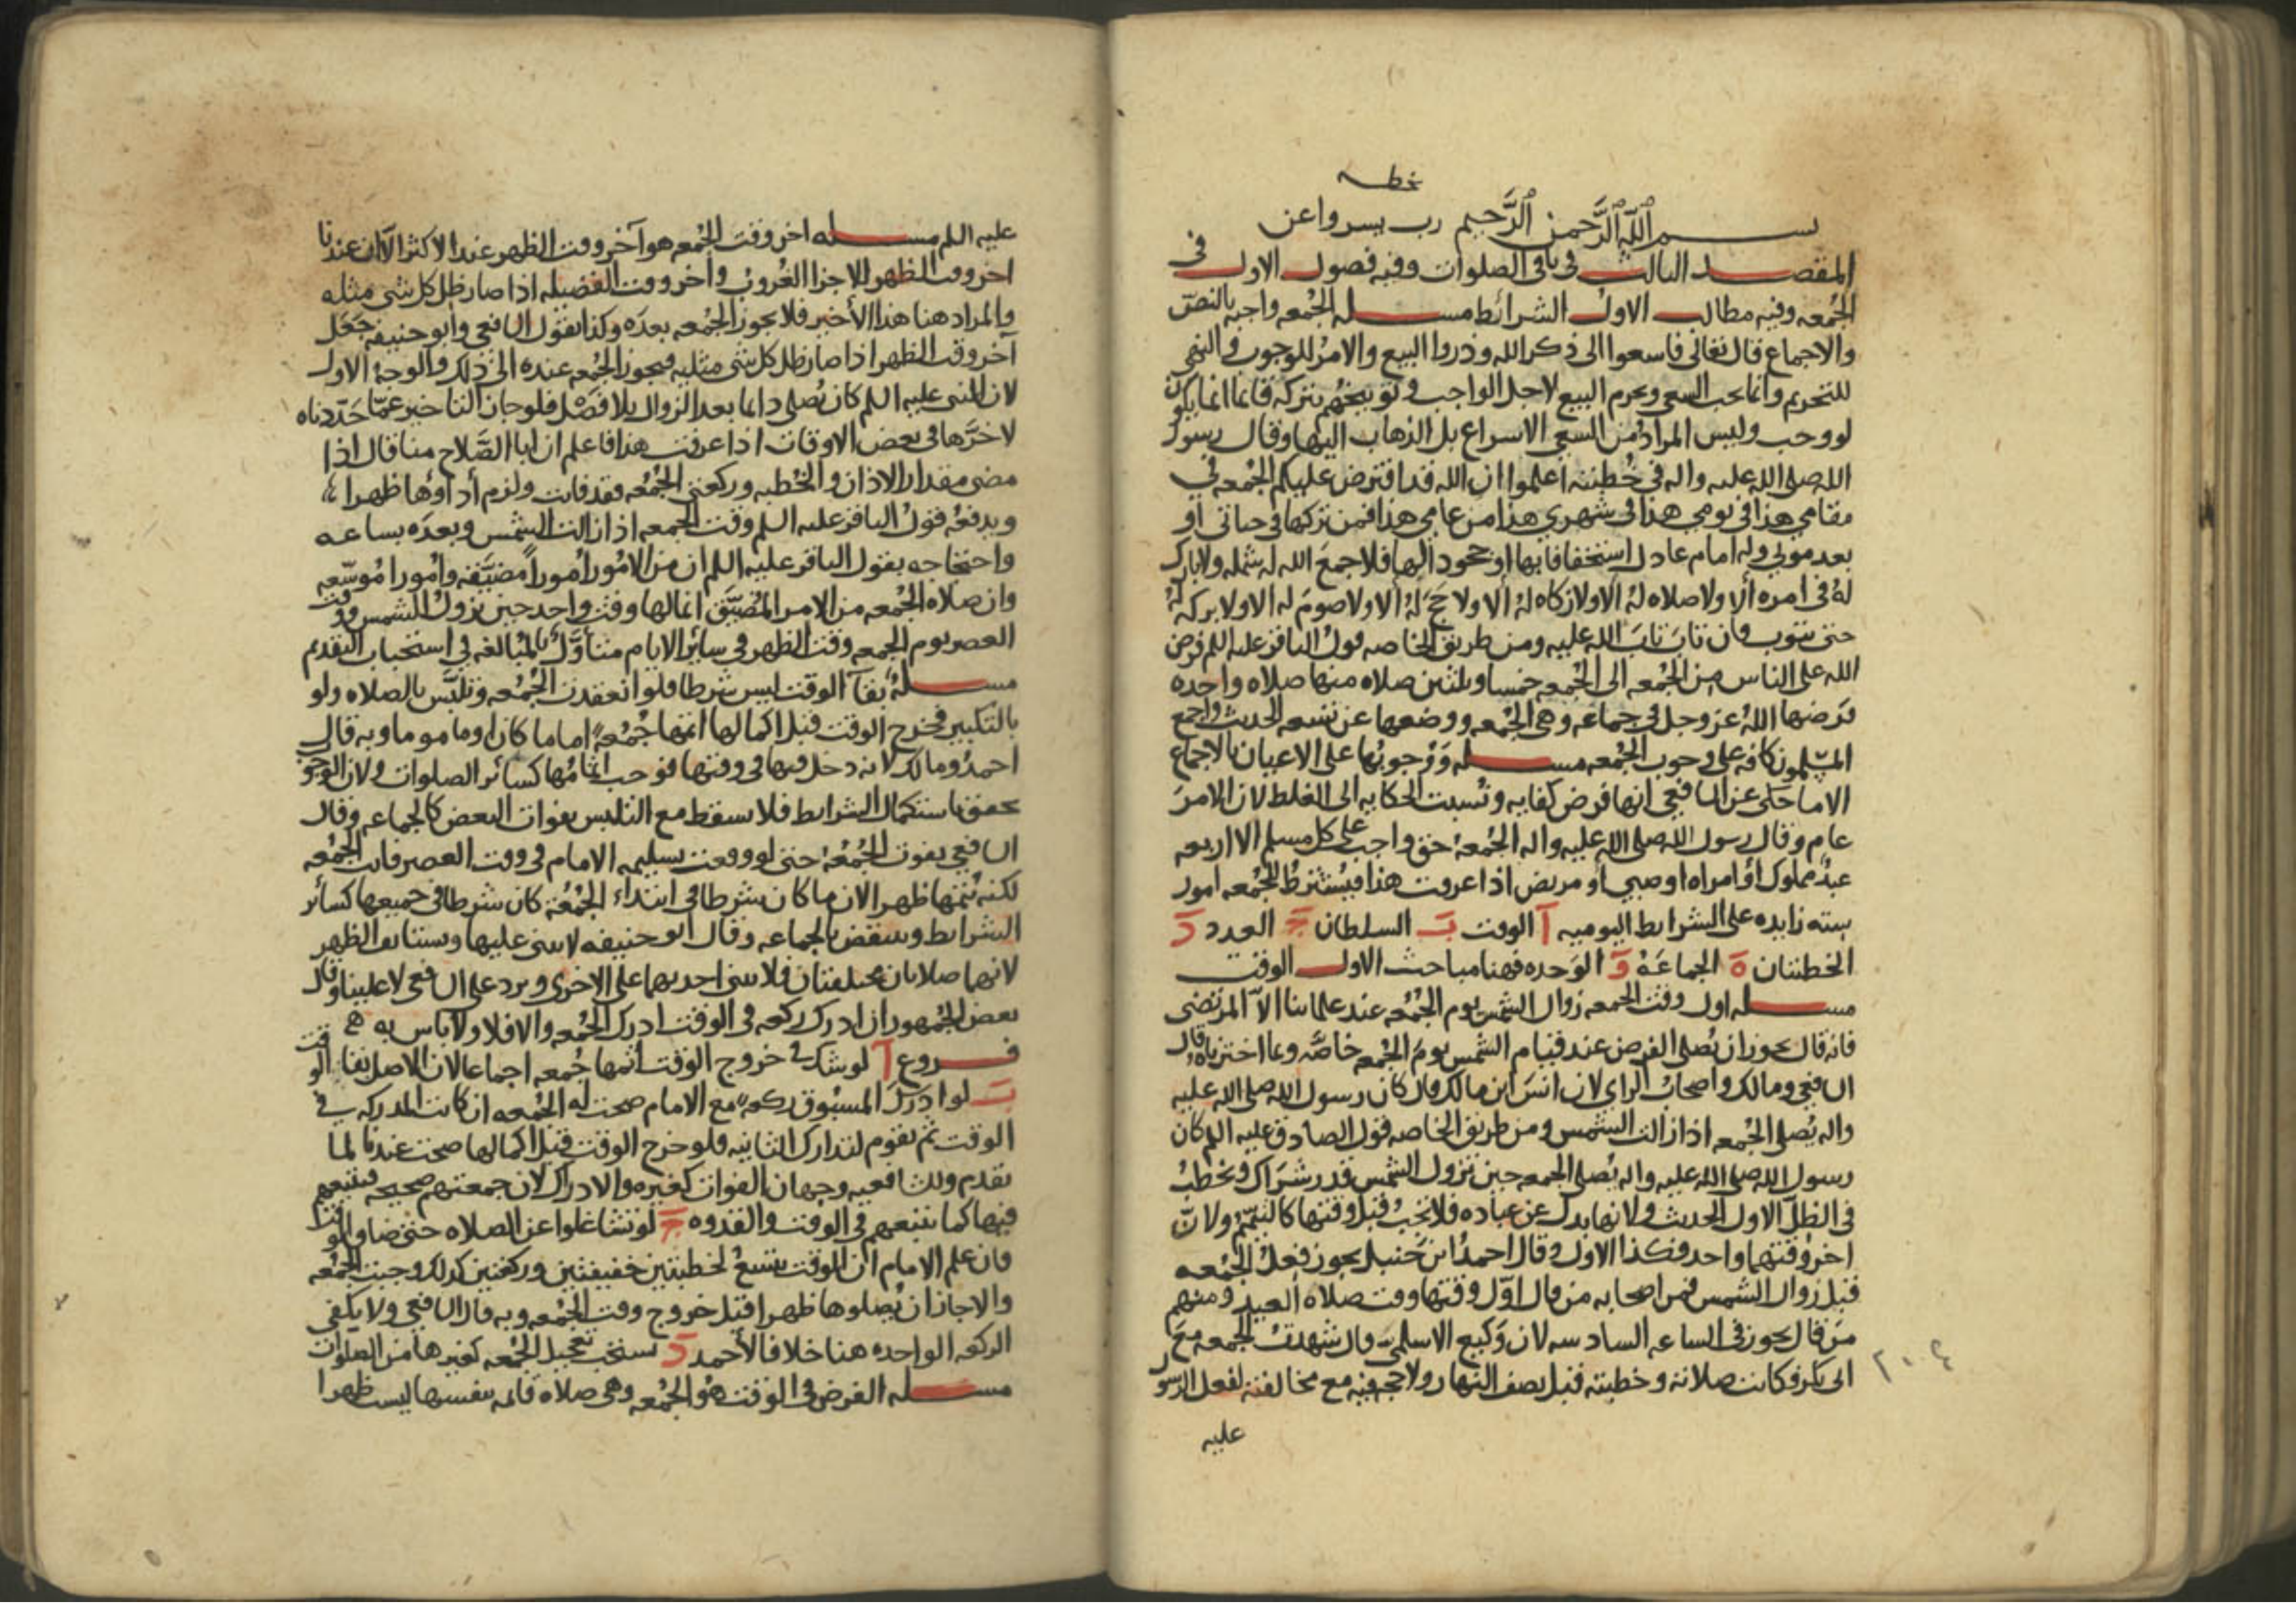 بخطه
بسم الله الرحمن الرحيم رب يسر واعن
المقصد الثالث في باقي الصلوات وفيه فصول الاول في
الجمعه وفيه مطالب الاول الشرائط مسله الجمعه واجبه بالنص
والاجماع قال تعالى فاسعوا الى ذكر الله وذروا البيع والامر للوجوب والنهي
للتحريم وانما يجب السعي ويحرم البيع لاجل الواجب وتوبيخهم بتركه قائما انما يكون
لو وجب وليس المراد من السعي الاسراع بل الذهاب اليها وقال رسول
الله صلى الله عليه واله في خطبته اعلموا ان الله قد افترض عليكم الجمعه في
مقامي هذا في يومي هذا في شهري هذا من عامي هذا فمن تركها في حياتي او
بعد موتي وله امام عادل استخفافا بها او جحودا لها فلا جمع الله له شمله ولا بارك
له في امره ألا ولا صلاه له ألا ولا زكاه له ألا ولا حج له ألا ولا صوم له الا ولا بركه له
حتى يتوب فان تاب تاب الله عليه ومن طريق الخاصه قول الباقر عليه اللم فرض
الله على الناس من الجمعه الى الجمعه خمسا وثلثين صلاه منها صلاه واحده
فرضها الله عز وجل في جماعه وهي الجمعه ووضعها عن تسعه الحديث واجمع
المسلمون كافه على وجوب الجمعه مسله ووجوبها على الاعيان بالاجماع
الا ما حكي عن الشافعي انها فرض كفايه ونسبت الحكايه الى الغلط لان الامر
عام وقال رسول الله صلى الله عليه واله الجمعه حق واجب على كل مسلم الا اربعه
عبد مملوك أو امراه او صبي او مريض اذا عرفت هذا فيشترط للجمعه امور
سته زايده على الشرايط اليوميه آ الوقت ب السلطان ج العدد د
الخطبتان ه الجماعة و الوحده فهنا مباحث الاول الوقت
مسله اول وقت الجمعه زوال الشمس يوم الجمعه عند علمائنا الا المرتضى
فانه قال يجوز ان يصلي الفرض عند قيام الشمس يوم الجمعه خاصة وبما اخترناه قال
الشافعي ومالك واصحاب الراي لان انس ابن مالك قال كان رسول الله صلى الله عليه
واله يصلي الجمعه اذا زالت الشمس ومن طريق الخاصه قول الصادق عليه اللم كان
رسول الله صلى الله عليه واله يصلي الجمعه حين تزول الشمس قدر شراك ويخطب
في الظل الاول الحديث ولانها بدل عن عباده فلا تجب قبل وقتها كالتيمم ولان
اخر وقتهما واحد فكذا الاول وقال احمد ابن حنبل يجوز فعل الجمعه
قبل زوال الشمس فمن اصحابه من قال اول وقتها وقت صلاه العيد ومنهم
من قال يجوز في الساعه السادسه لان وكيع الاسلمي قال شهدت الجمعه مع
ابي بكر فكانت صلاته وخطبته قبل نصف النهار ولا حجه فيه مع مخالفته لفعل الرسول
عليه
٢٠٤
عليه اللم مسله اخر وقت الجمعه هو آخر وقت الظهر عند الاكثر الا ان عندنا
اخر وقت الظهر للاجزا الغروب واخر وقت الفضيله اذا صار ظل كل شي مثله
والمراد هنا هذا الأخير فلا يجوز الجمعه بعده وكذا نقول الشافعي وابو حنيفه جعل
آخر وقت الظهر اذا صار ظل كل شي مثليه فيجوز الجمعه عنده الى ذلك والوجه الاول
لان النبي عليه اللم كان يصلي دائما بعد الزوال بلا فصل فلو جاز التاخير عما حددناه
لاخرها في بعض الاوقات اذا عرفت هذا فاعلم ان ابا الصلاح منا قال اذا
مضى مقدار الاذان والخطبه وركعتي الجمعه فقد فاتت ولزم أداؤها ظهرا
ويدفعه قول الباقر عليه اللم وقت الجمعه اذا زالت الشمس وبعده بساعه
واحتجاجه بقول الباقر عليه اللم ان من الامور أمورا مضيقه وامورا موسعه
وان صلاه الجمعه من الامر المضيق انما لها وقت واحد حين تزول الشمس ووقت
العصر يوم الجمعه وقت الظهر في سائر الايام متأول بالمبالغه في استحباب التقديم
مسله بقآ الوقت ليس شرطا فلو انعقدت الجمعه وتلبس بالصلاه ولو
بالتكبير فخرج الوقت قبل اكمالها اتمها جمعه اماما كان او ماموما وبه قال
احمد ومالك لانه دخل فيها في وقتها فوجب اتمامها كسائر الصلوات ولان الوجوب
تحقق باستكمال الشرايط فلا يسقط مع التلبس بفوات البعض كالجماعه وقال
الشافعي يفوت الجمعه حتى لو وقعت تسليمه الامام في وقت العصر فاتت الجمعه
لكنه يتمها ظهرا لان ما كان شرطا في ابتداء الجمعه كان شرطا في جميعها كسائر
الشرايط وينتقض بالجماعه وقال ابو حنيفه لا يبني عليها ويستانف الظهر
لانهما صلاتان مختلفتان فلا يبني احديهما على الاخرى ويرد على الشافعي لا علينا وقال
بعض الجمهور ان ادرك ركعه في الوقت ادرك الجمعه والا فلا ولا باس به
فروع آ لو شك في خروج الوقت اتمها جمعه اجماعا لان الاصل بقا الوقت
ب لو ادرك المسبوق ركعه مع الامام صحت له الجمعه ان كانت المدركه في
الوقت ثم يقوم لتدارك الثانيه فلو خرج الوقت قبل اكمالها صحت عندنا لما
تقدم وللشافعيه وجهان الفوات كغيره والادراك لان جمعتهم صحيحه فيتبعهم
فيها كما يتبعهم في الوقت والقدوه ج لو تشاغلوا عن الصلاه حتى ضاق الوقت
فان علم الامام ان الوقت يتسع لخطبتين خفيفتين وركعتين كذلك وجبت الجمعه
والا جاز ان يصلوها ظهرا قبل خروج وقت الجمعه وبه قال الشافعي ولا يكفي
الركعه الواحده هنا خلافا لأحمد د يستحب تعجيل الجمعه كغيرها من الصلوات
مسله الفرض في الوقت هو الجمعه وهي صلاه قائمه بنفسها ليست ظهرا